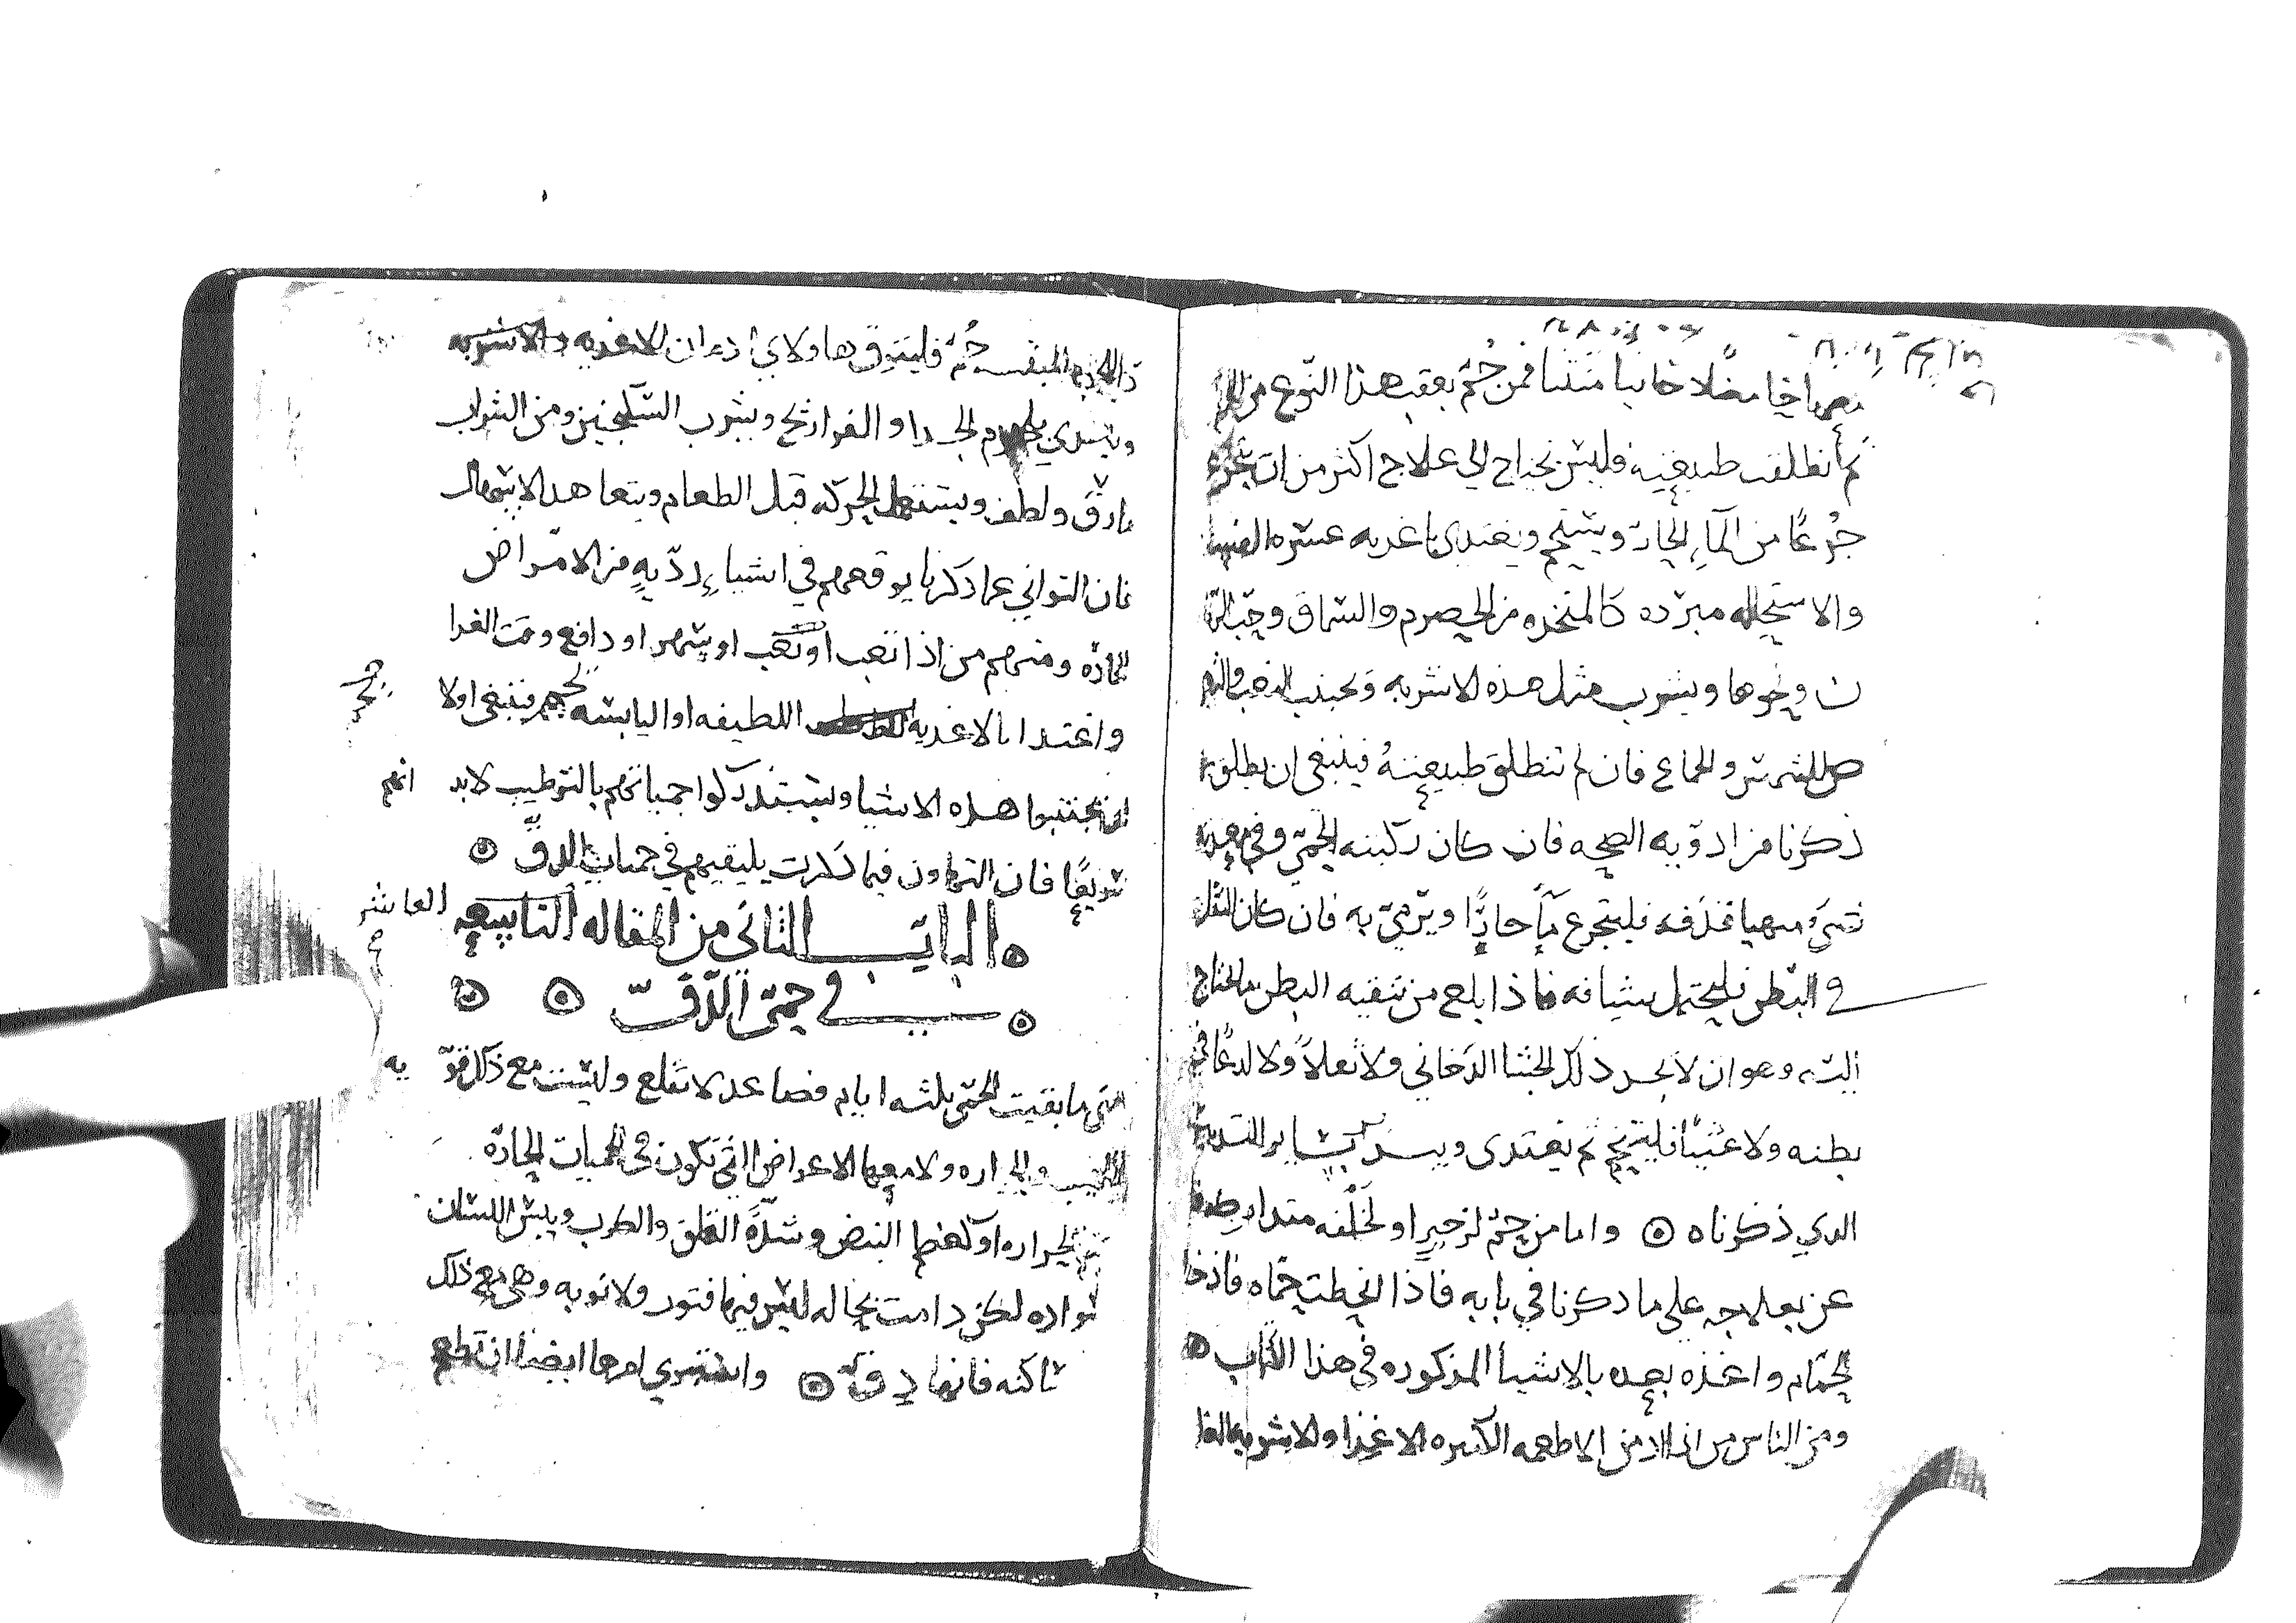 فمن حُمّ بعقب هذا النوع من
ثم انطلقت طبيعته فليس يحتاج الى علاج اكثر من ان يتجرع
جُرعًا من المآء الحارّ ويستحم ويغتدى باغديه عسره الفساد
والاستحاله مبرّده كالمتخده من الحصرم والسماق وحبّ الرّمّا
ن ونحوها ويشرب مثل هذه الاشربه ويجتنب التعب
للشمس والجماع فان لم تنطلق طبيعتهُ فينبغى ان يطلق بما
ذكرنا من ادويه فان كان ركبته الحمّى وفى معدته
شىء فليتجرع مآءً حارًّا ويرمى به فان كان الثقل
في البطن فليحتمل شيافه فاذا بلغ من تنقيه البطن ما يحتاج
اليه وهو ان لا يجد ذلك الجشا الدّخانى ولا ثقلاً ولا لدعًا في
بطنه ولا غثيًا فليستحم ثم يغتدى التدبير
الدي ذكرناه ۞ واما من حُمّ لزحيرٍ او لخلفه
بعلاجه على ما دكرنا في بابه فاذا انحطت حمّاه فادخله
الحمّام واغذه بعده بالاشيا المذكوره فى هذا الكتاب ۞
ومن الناس من اذا ادمن الاطعمه الكثيره الاغذا والاشربه
حُمّ فليتوق هاولاي ادمان الاغديه والاشربه
الجدا والفراريج ويشرب السكنجبين ومن الشراب
مارقّ ولطف ويستعمل الحركه قبل الطعام ويتعاهد الاسهال
فان التوانى عما دكرنا يوقعهم في اشياءٍ رديّهٍ من الامراض
الحادّه ومنهم من اذا تعب او سهر او دافع وقت الغدا
واغتدا بالاغديه اللطيفه او اليابسه حم فينبغى اولا
ان يجتنبوا هده الاشيا ويستدركوا حمياتهم بالترطيب لابد انهم
سريعًا فان التهاون فيما دكرت يليقيهم في حميات الدقّ ۞
۞ الباب الثانى من المقاله التاسعه العاشره
۞ في حمّى الدّقّ ۞ ۞
متى ما بقيت الحمّى ثلثه ايام فصاعدا لا تقلع وليست مع ذلك قويّه
اللهيب والحراره ولا معها الاعراض التى تكون فى الحميات الحادّه
الحراره او لعظم النبض وشدّة القلق والكرب ويبس اللسان
وسواده لكن دامت بحاله ليس فيها فتور ولا نوبه وهى مع ذلك
ساكنه فانها دِقّ ۞ واستبرى امرها ايضا ان تطعم